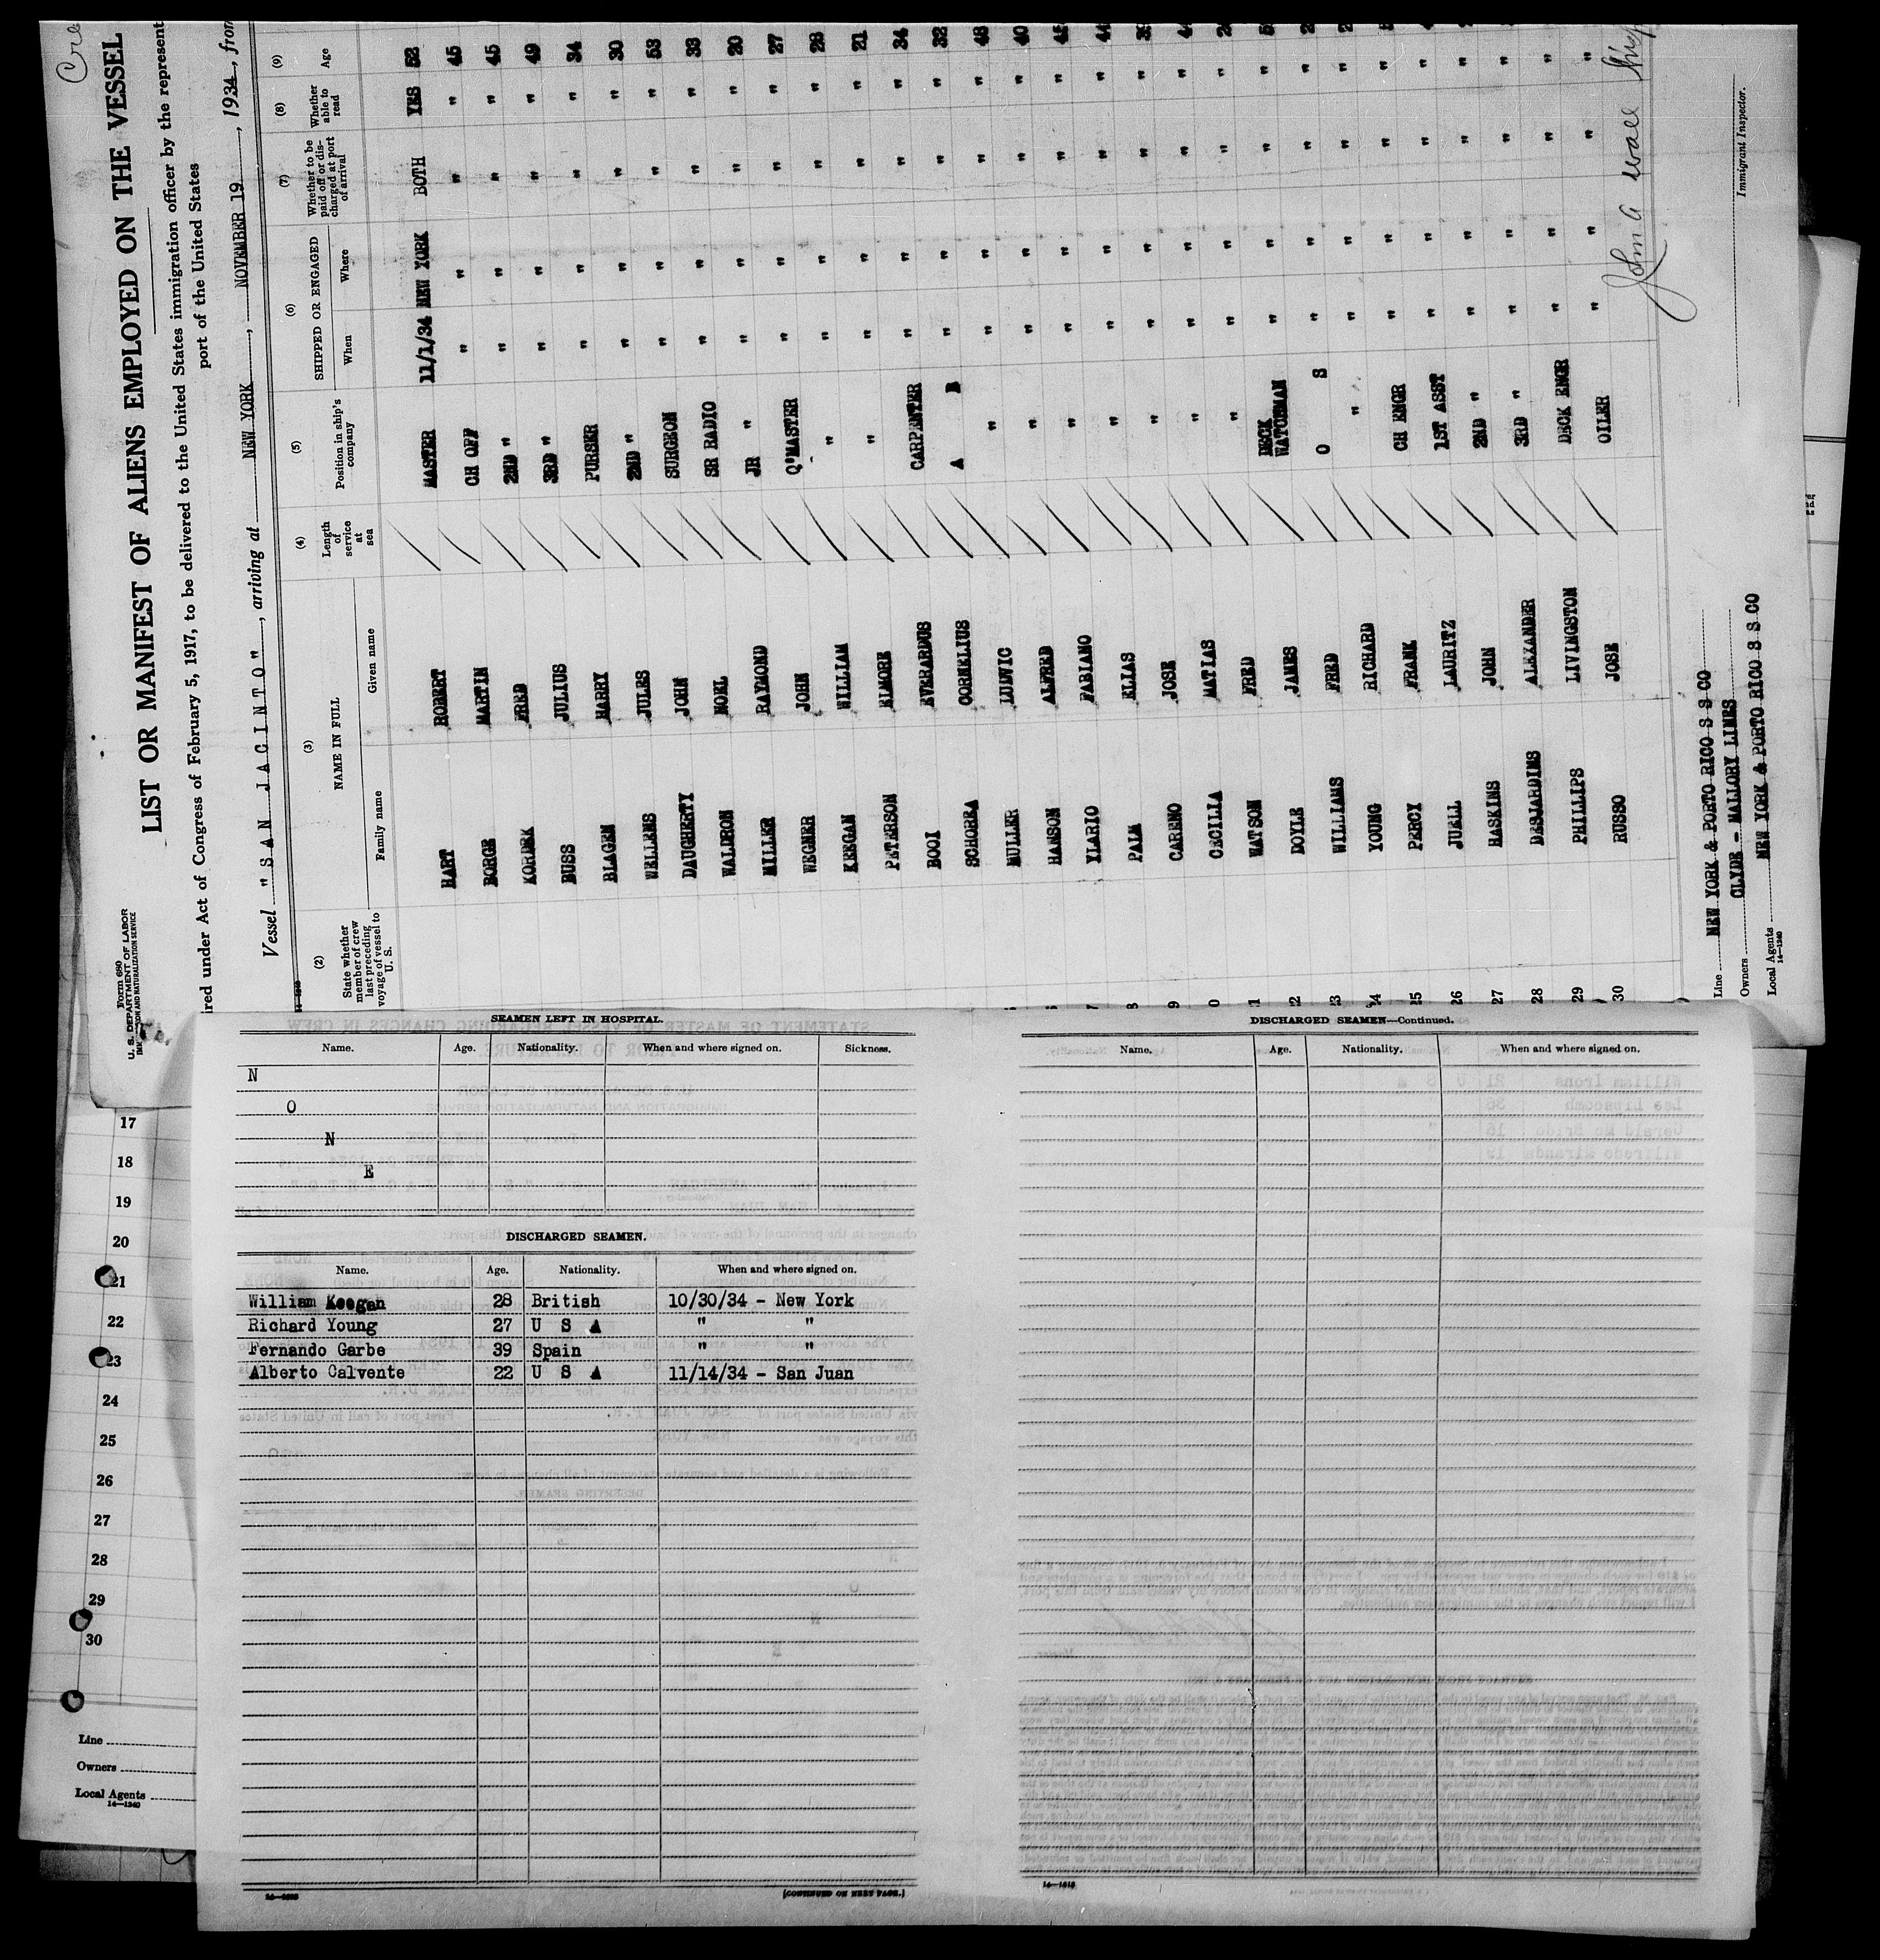 Cre
Form 680
U. S. DEPARTMENT OF LABOR
LIST OR MANIFEST OF ALIENS EMPLOYED ON THE VESSEL
ired under Act of Congress of February 5, 1917, to be delivered to the United States immigration officer by the represent
port of the United States
Vessel "SAN JACINTO", arriving at NEW YORK, NOVEMBER 19, 1934, from
(2) (3) (4) (5) (6) (7) (8) (9)
State whether member of crew last preceding voyage of vessel to U. S.
NAME IN FULL
Family name Given name
Length of service at sea
Position in ship's company
SHIPPED OR ENGAGED
When Where
Whether to be paid off or discharged at port of arrival
Whether able to read
Age
HART ROBERT MASTER 11/1/34 NEW YORK BOTH YES 52
BORGE MARTIN CH OFF " " " " 45
KORDEK FRED 2ND " " " " " 45
BUSS JULIUS 3RD " " " " " 49
BLAGEN HARRY PURSER " " " " 34
WELLENS JULES 2ND " " " " " 30
DAUGHERTY JOHN SURGEON " " " " 53
WALDRON NOEL SR RADIO " " " " 33
MILLER RAYMOND JR " " " " " 20
WEGNER JOHN Q'MASTER " " " " 27
KEEGAN WILLIAM " " " " " 28
PETERSON ELMORE " " " " " 21
BOOI EVERARDUS CARPENTER " " " " 34
SCHORRA CORNELIUS A B " " " " 32
MULLER LUDVIC " " " " " 48
HANSON ALFRED " " " " " 40
YLARIO FABIANO " " " " "
PALM ELIAS " " " " "
CARENO JOSE " " " " "
CECILIA MATIAS " " " " "
WATSON FRED " " " " "
DOYLE JAMES DECK WATCHMAN " " " "
WILLIAMS FRED O S " " " "
YOUNG RICHARD " " " " "
PERCY FRANK CH ENGR " " " "
JUELL LAURITZ 1ST ASST " " " "
HASKINS JOHN 2ND " " " " "
DESJARDINS ALEXANDER 3RD " " " " "
PHILLIPS LIVINGSTON DECK ENGR " " " "
30 RUSSO JOSE OILER " " " "
John A Wall
Line NEW YORK & PORTO RICO S S CO
Owners CLYDE - MALLORY LINES
Local Agents NEW YORK & PORTO RICO S S CO
14—1240
Immigrant Inspector.
SEAMEN LEFT IN HOSPITAL.
Name. Age. Nationality. When and where signed on. Sickness.
N
O
N
E
DISCHARGED SEAMEN.
Name. Age. Nationality. When and where signed on.
William Keegan 28 British 10/30/34 - New York
Richard Young 27 U S A " "
Fernando Garbe 39 Spain " "
Alberto Calvente 22 U S A 11/14/34 - San Juan
[CONTINUED ON NEXT PAGE.]
DISCHARGED SEAMEN—Continued.
Name. Age. Nationality. When and where signed on.
17
18
19
20
21
22
23
24
25
26
27
28
29
30
Line
Owners
Local Agents
14—1240